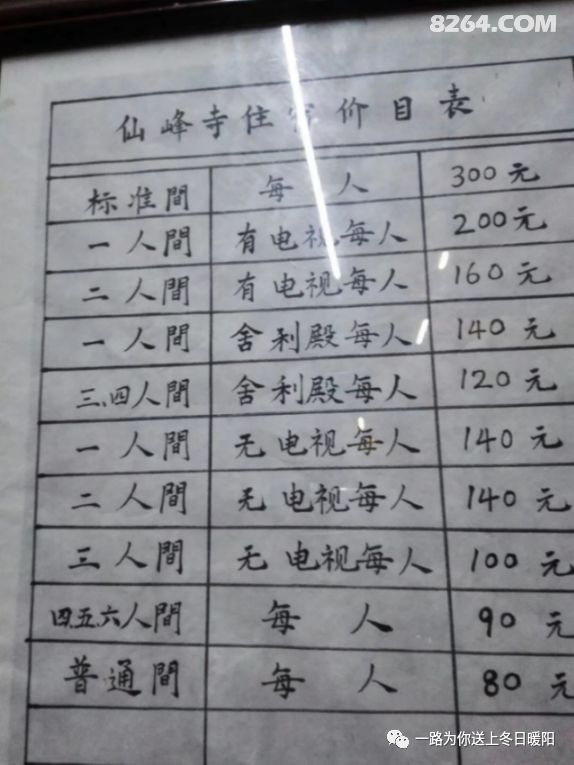 8264.COM
仙峰寺住宿价目表
标准間 每人 300元
一人間 有电视每人 200元
二人間 有电视每人 160元
一人間 舍利殿每人 140元
三.四人間 舍利殿每人 120元
一人間 无电视每人 140元
二人間 无电视每人 140元
三人間 无电视每人 100元
四.五.六人間 每人 90元
普通間 每人 80元
一路为你送上冬日暖阳